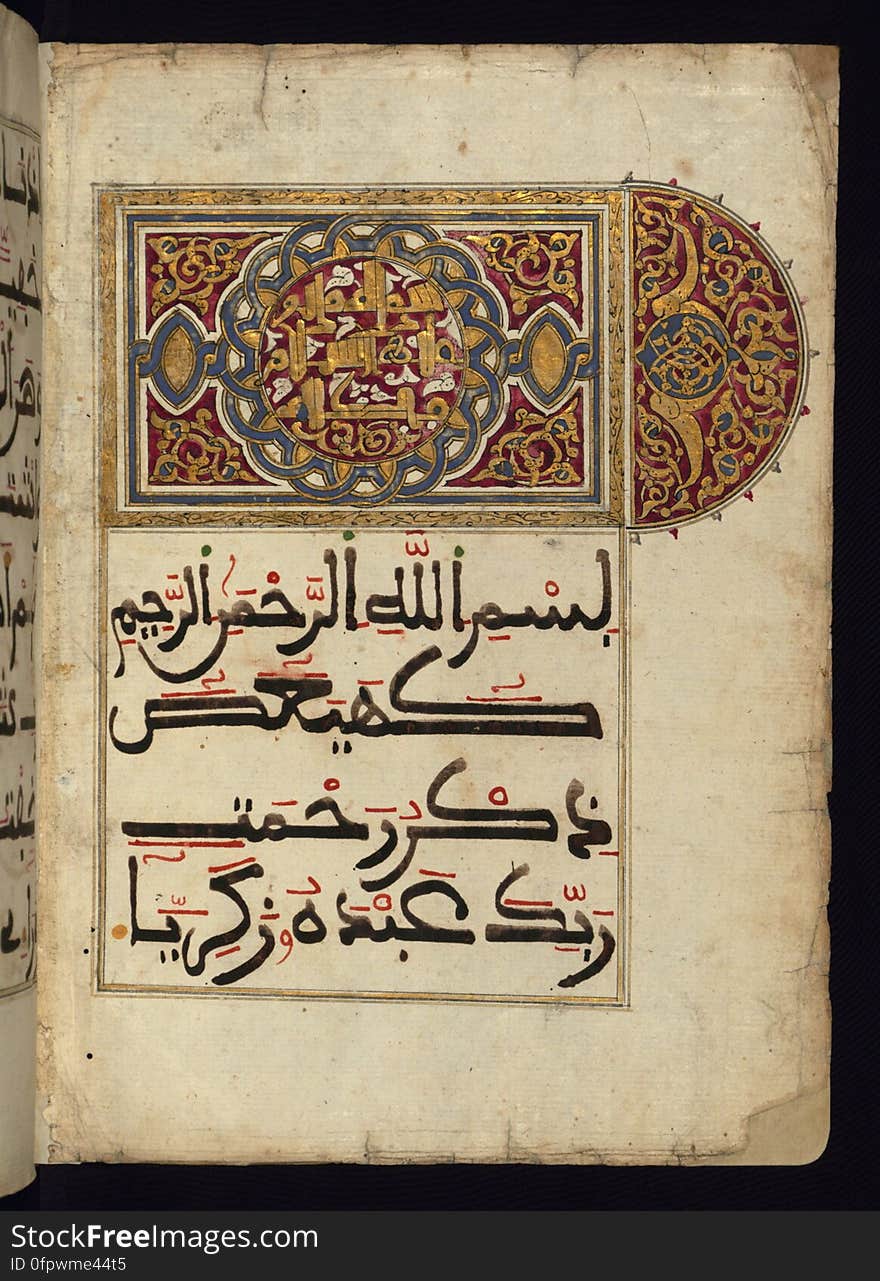 بِسْمِ اللَّهِ الرَّحْمَنِ الرَّحِيمِ
كهيعص
ذِكْرُ رَحْمَتِ
رَبِّكَ عَبْدَهُ زَكَرِيَّا
StockFreeImages.com
ID 0fpwme44t5